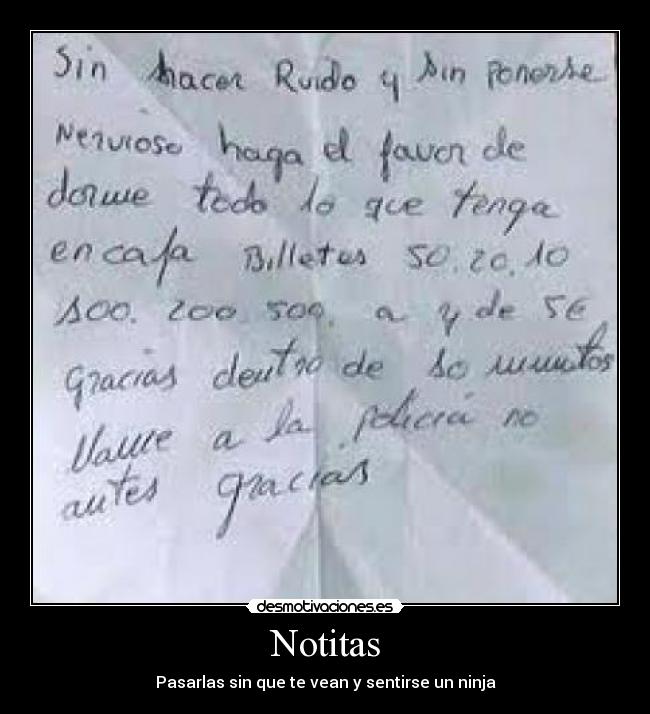 Sin hacer Ruido y sin ponerse
Nervioso haga el favor de
dorme todo lo que tenga
en caja Billetes 50. 20. 10
100. 200. 500. a y de 5€
gracias dentro de 10 minutos
llame a la policia no
antes gracias
desmotivaciones.es
Notitas
Pasarlas sin que te vean y sentirse un ninja